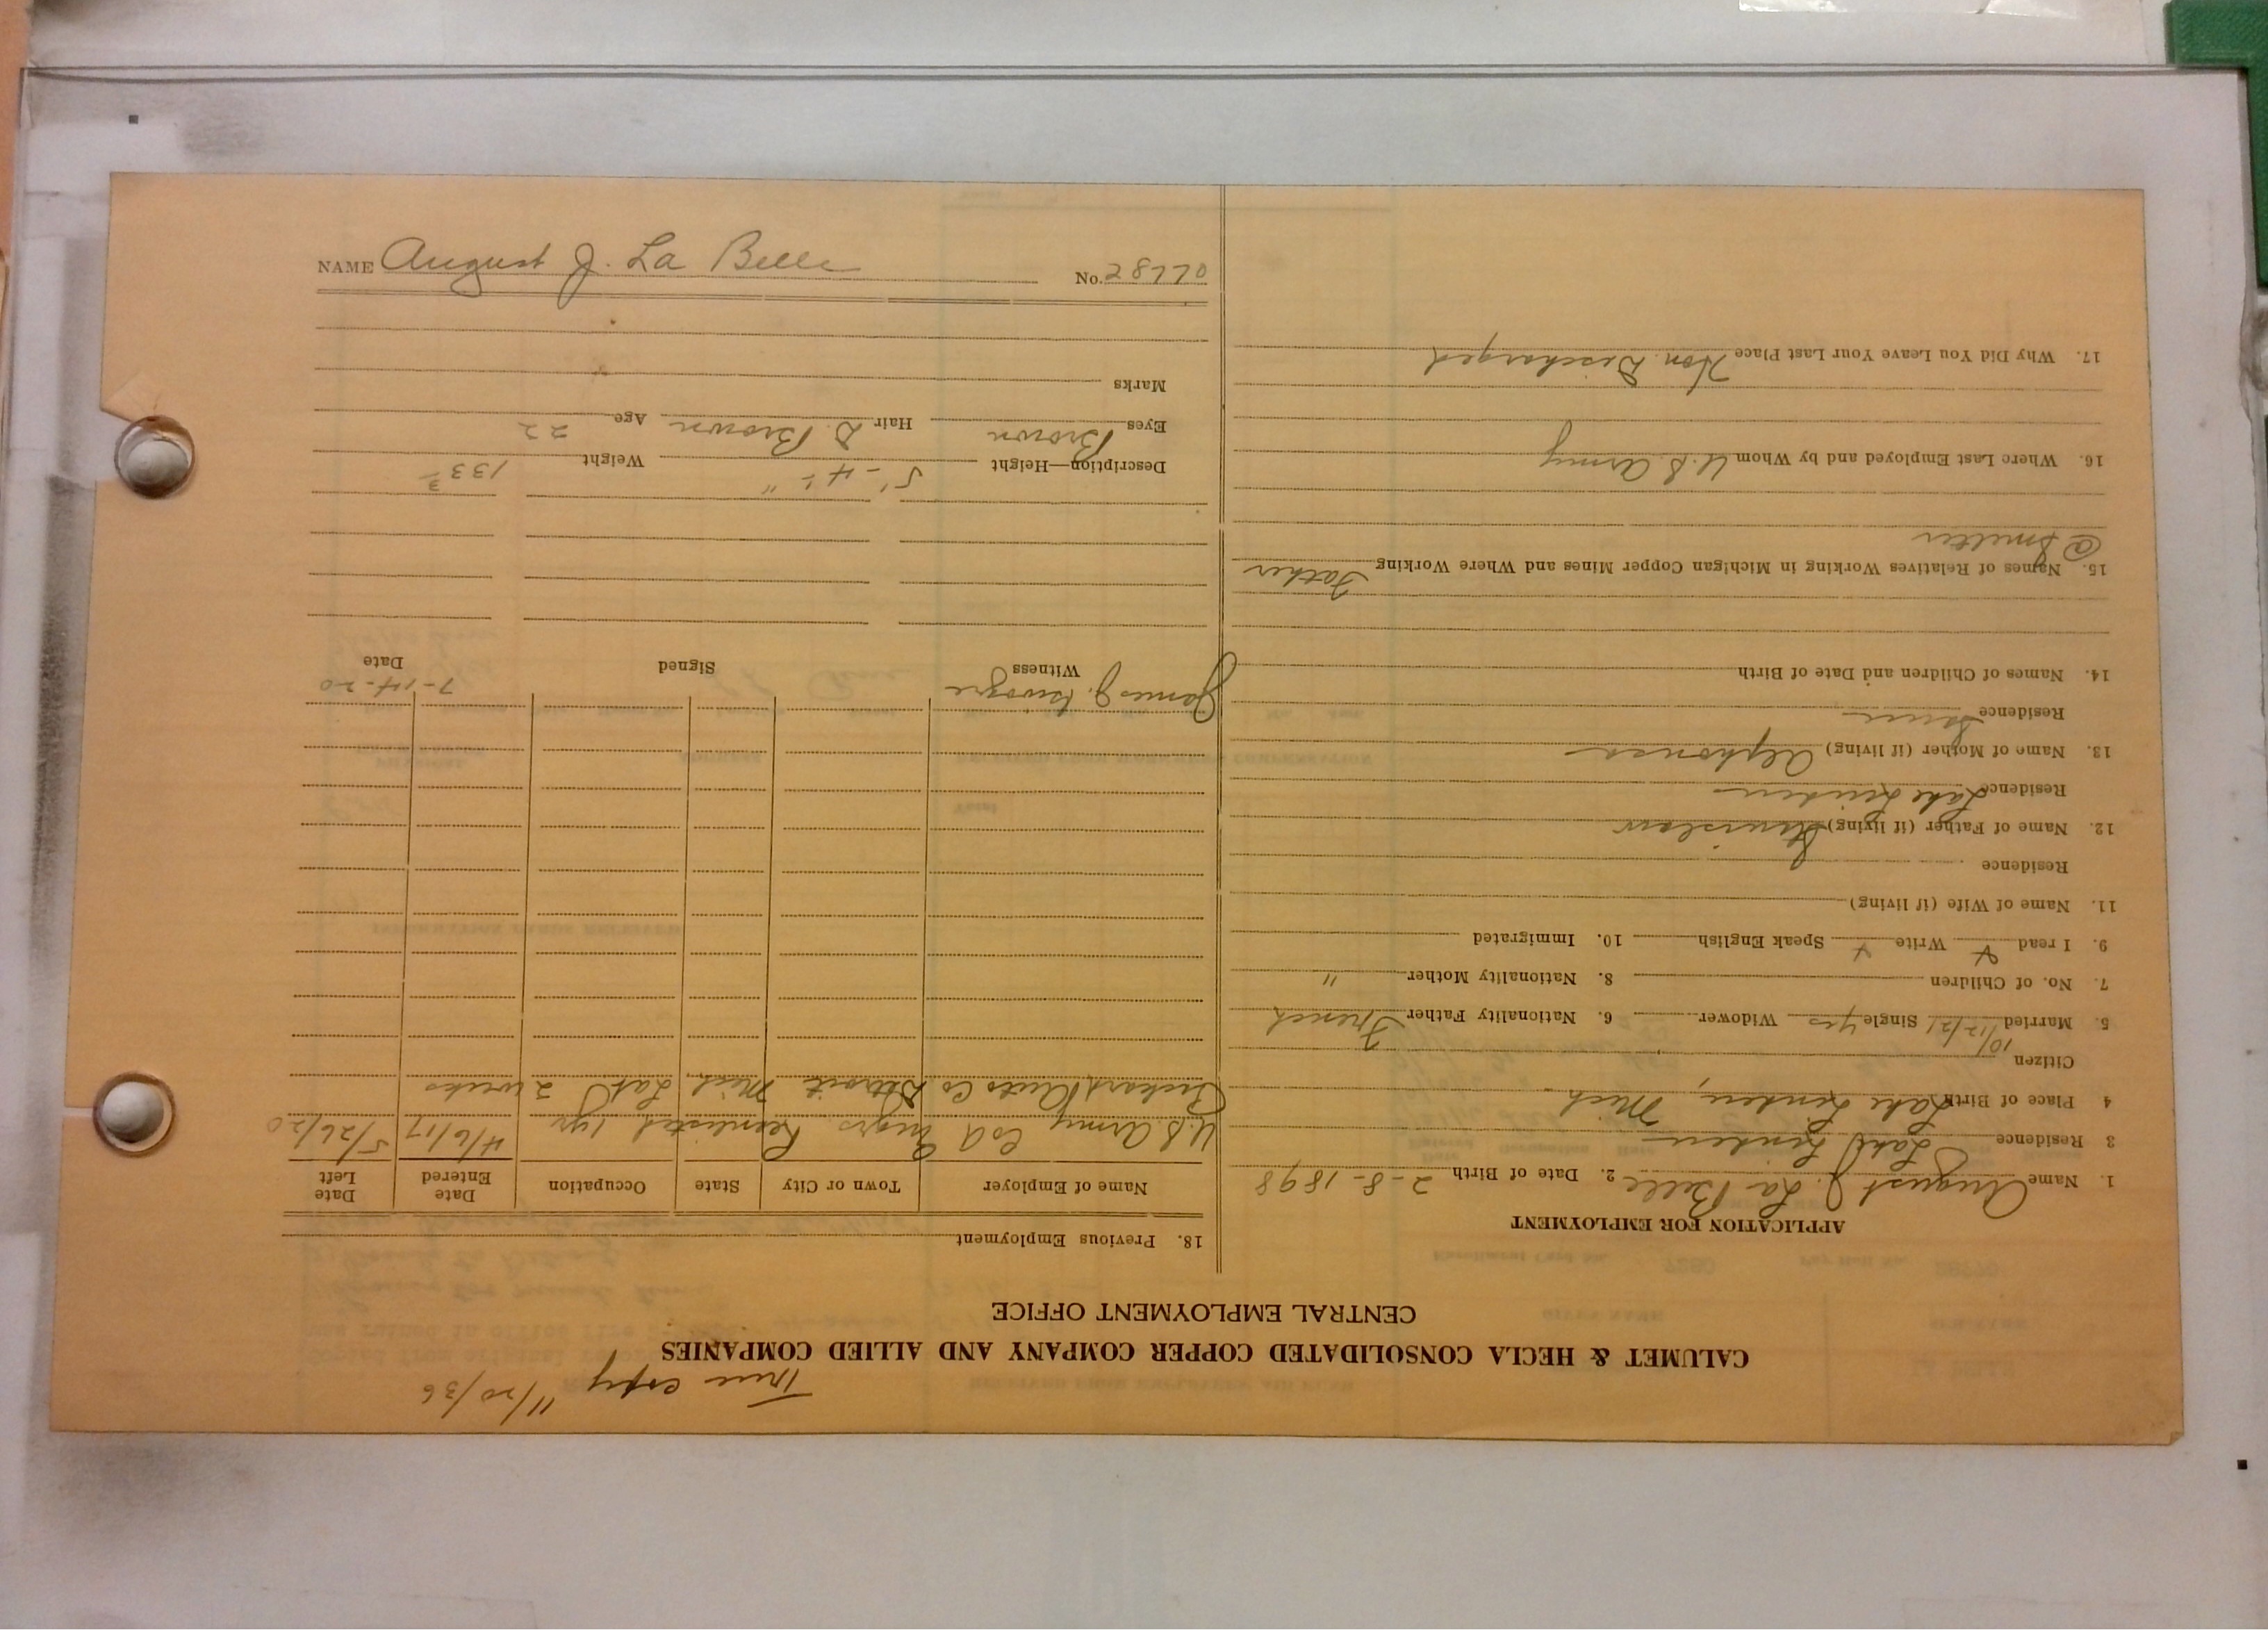 True copy 11/20/36
CALUMET & HECLA CONSOLIDATED COPPER COMPANY AND ALLIED COMPANIES
CENTRAL EMPLOYMENT OFFICE
APPLICATION FOR EMPLOYMENT
1. Name August J. La Belle 2. Date of Birth 2-8-1898
3 Residence Lake Linden
4 Place of Birth Lake Linden, Mich
Citizen
5. Married 10/12/21 Single yes Widower 6. Nationality Father French
7. No. of Children 8. Nationality Mother "
9. I read Write Speak English 10. Immigrated
11. Name of Wife (if living)
Residence
12. Name of Father (if living) Stanislaus
Residence Lake Linden
13. Name of Mother (if living) Alphonsa
Residence Same
14. Names of Children and Date of Birth
15. Names of Relatives Working in Michigan Copper Mines and Where Working Father
@ Smelter
16. Where Last Employed and by Whom U.S. Army
17. Why Did You Leave Your Last Place Hon Discharged
18. Previous Employment
Name of Employer Town or City State Occupation Date Entered Date Left
U.S. Army Co A Engrs. Reenlisted 1 yr 4/6/17 5/26/20
Packard Auto Co Detroit Mich Lab 2 weeks
James J. Witness Signed 7-14-20 Date
Description—Height 5'-4 " Weight 133
Eyes Brown Hair D. Brown Age 22
Marks
NAME August J. La Belle No. 28770